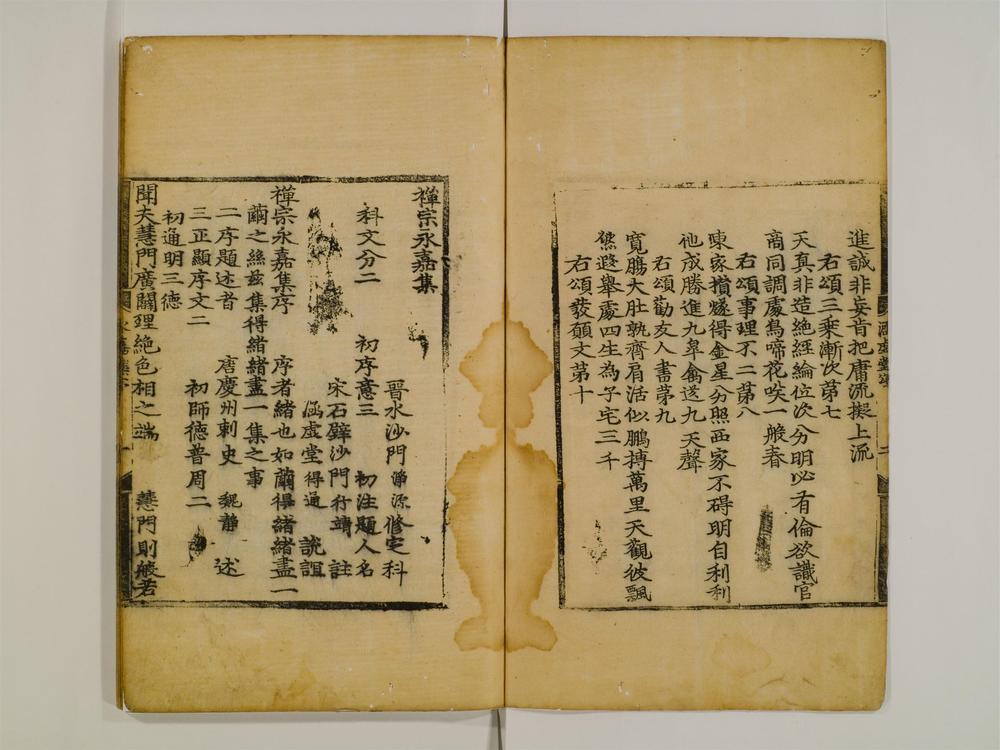 進誠非妄肯把庸流擬上流
右頌三乘漸次第七
天真非造絶經綸位次分明必有倫欲識官
商同調處鳥啼花咲一般春
右頌事理不二第八
東家撗燧得金星分照西家不碍明自利利
他成勝進九皐禽送九天聲
右頌勸友人書第九
寬膓大肚孰齊肩活似鵬搏萬里天觀彼飄
然遐舉處四生為子宅三千
右頌發願文第十
禪宗永嘉集
晉水沙門淨源修定科
科文分二 初序意三 初注題人名
宋石壁沙門行靖註
涵虛堂得通說誼
禪宗永嘉集序 序者緒也如繭得緒緒盡一
繭之絲茲集得緒緒盡一集之事
二序題述者 唐慶州刺史 魏靜 述
三正顯序文二 初師德普周二
初通明三德
聞夫慧門廣闢理絶色相之端 慧門則般若